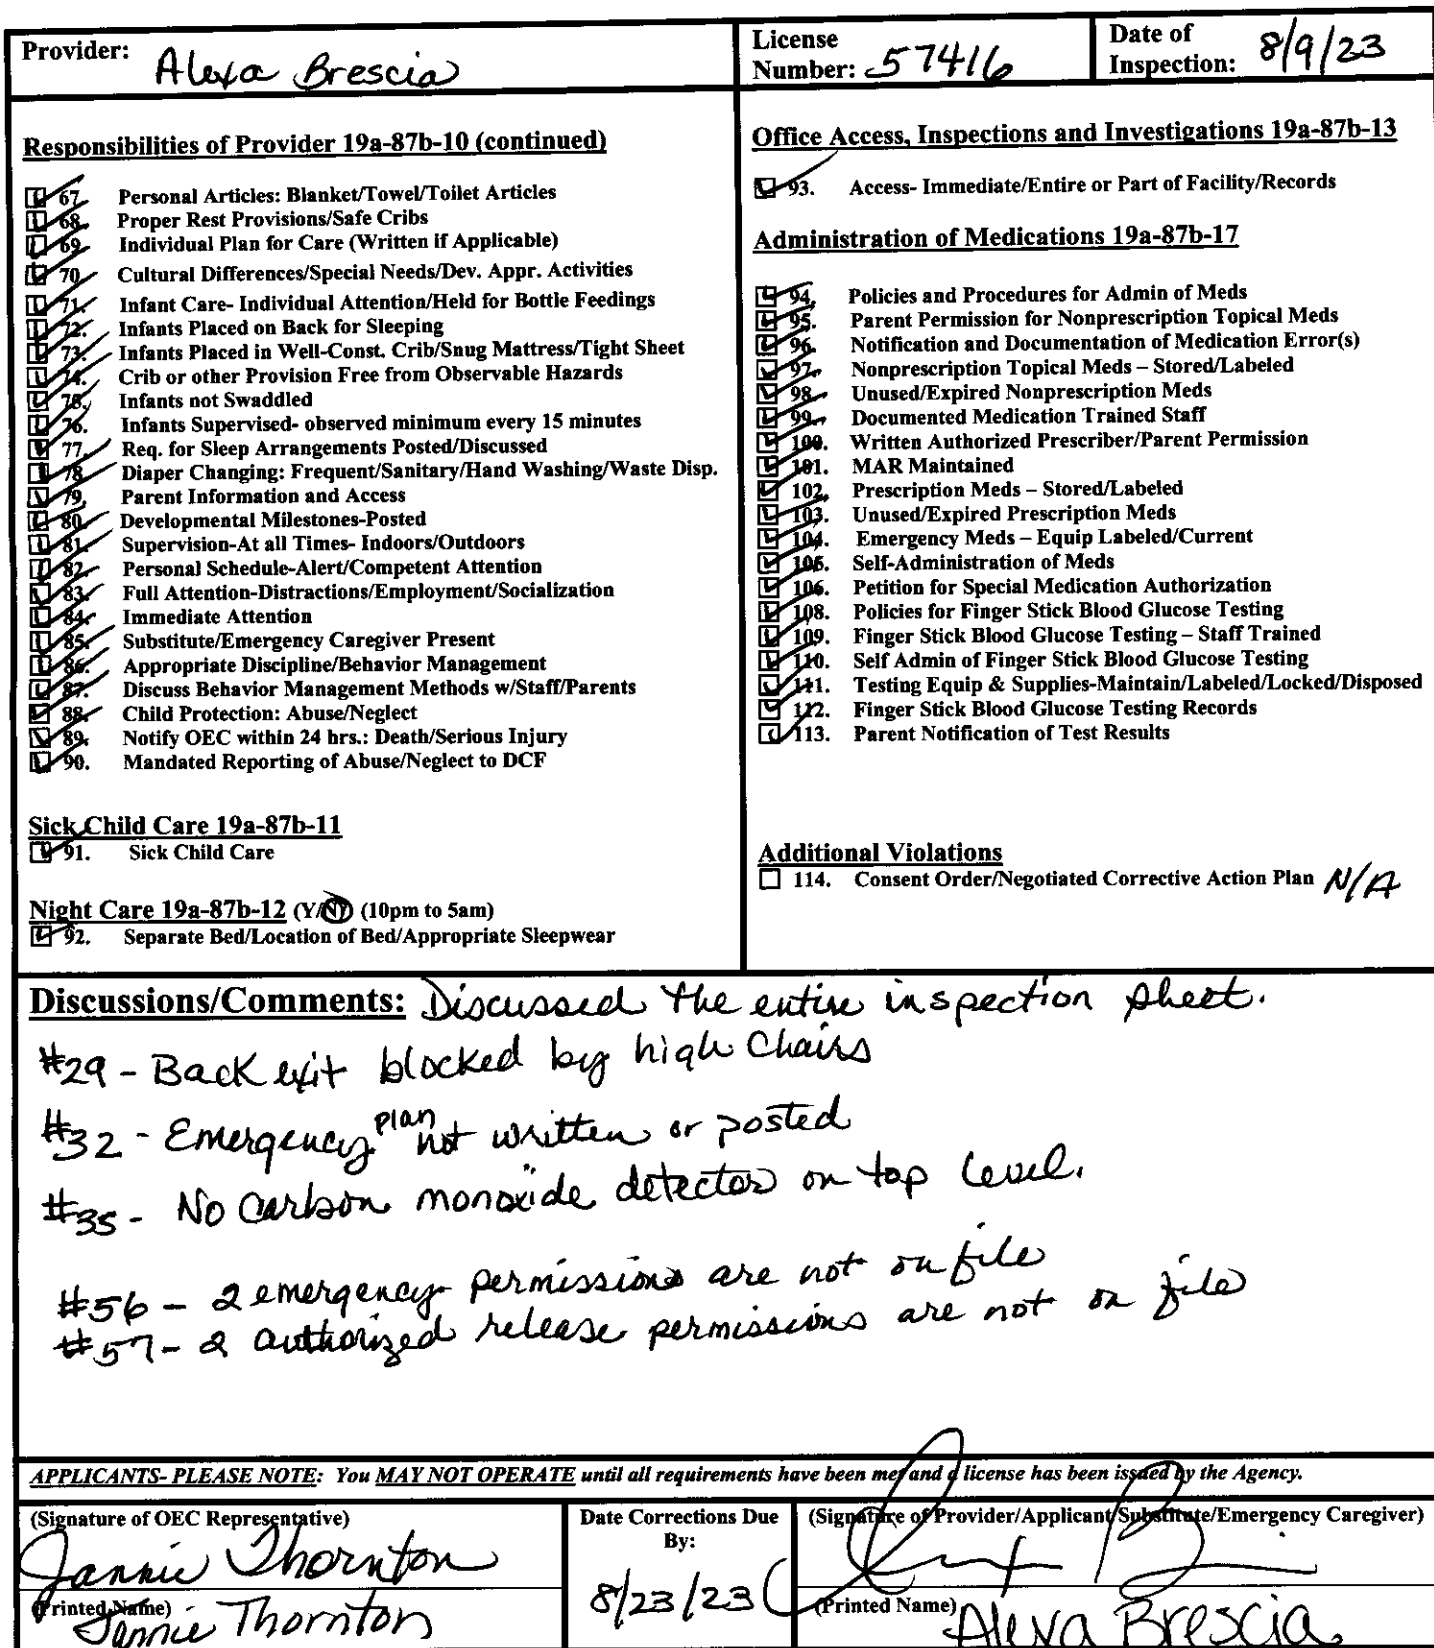 Provider: Alexa Brescia
License Number: 57416
Date of Inspection: 8/9/23
Responsibilities of Provider 19a-87b-10 (continued)
67. Personal Articles: Blanket/Towel/Toilet Articles
68. Proper Rest Provisions/Safe Cribs
69. Individual Plan for Care (Written if Applicable)
70. Cultural Differences/Special Needs/Dev. Appr. Activities
71. Infant Care- Individual Attention/Held for Bottle Feedings
72. Infants Placed on Back for Sleeping
73. Infants Placed in Well-Const. Crib/Snug Mattress/Tight Sheet
74. Crib or other Provision Free from Observable Hazards
75. Infants not Swaddled
76. Infants Supervised- observed minimum every 15 minutes
77. Req. for Sleep Arrangements Posted/Discussed
78. Diaper Changing: Frequent/Sanitary/Hand Washing/Waste Disp.
79. Parent Information and Access
80. Developmental Milestones-Posted
81. Supervision-At all Times- Indoors/Outdoors
82. Personal Schedule-Alert/Competent Attention
83. Full Attention-Distractions/Employment/Socialization
84. Immediate Attention
85. Substitute/Emergency Caregiver Present
86. Appropriate Discipline/Behavior Management
87. Discuss Behavior Management Methods w/Staff/Parents
88. Child Protection: Abuse/Neglect
89. Notify OEC within 24 hrs.: Death/Serious Injury
90. Mandated Reporting of Abuse/Neglect to DCF
Sick Child Care 19a-87b-11
91. Sick Child Care
Night Care 19a-87b-12 (Y/N) (10pm to 5am)
92. Separate Bed/Location of Bed/Appropriate Sleepwear
Office Access, Inspections and Investigations 19a-87b-13
93. Access- Immediate/Entire or Part of Facility/Records
Administration of Medications 19a-87b-17
94. Policies and Procedures for Admin of Meds
95. Parent Permission for Nonprescription Topical Meds
96. Notification and Documentation of Medication Error(s)
97. Nonprescription Topical Meds – Stored/Labeled
98. Unused/Expired Nonprescription Meds
99. Documented Medication Trained Staff
100. Written Authorized Prescriber/Parent Permission
101. MAR Maintained
102. Prescription Meds – Stored/Labeled
103. Unused/Expired Prescription Meds
104. Emergency Meds – Equip Labeled/Current
105. Self-Administration of Meds
106. Petition for Special Medication Authorization
108. Policies for Finger Stick Blood Glucose Testing
109. Finger Stick Blood Glucose Testing – Staff Trained
110. Self Admin of Finger Stick Blood Glucose Testing
111. Testing Equip & Supplies-Maintain/Labeled/Locked/Disposed
112. Finger Stick Blood Glucose Testing Records
113. Parent Notification of Test Results
Additional Violations
114. Consent Order/Negotiated Corrective Action Plan N/A
Discussions/Comments: Discussed the entire inspection sheet.
#29 - Back exit blocked by high chairs
#32 - Emergency plan not written or posted
#35 - No carbon monoxide detector on top level.
#56 - 2 emergency permissions are not on file
#57 - 2 authorized release permissions are not on file
APPLICANTS- PLEASE NOTE: You MAY NOT OPERATE until all requirements have been met and a license has been issued by the Agency.
(Signature of OEC Representative)
Jannie Thornton
(Printed Name)
Jannie Thornton
Date Corrections Due By:
8/23/23
(Signature of Provider/Applicant/Substitute/Emergency Caregiver)
(Printed Name) Alexa Brescia